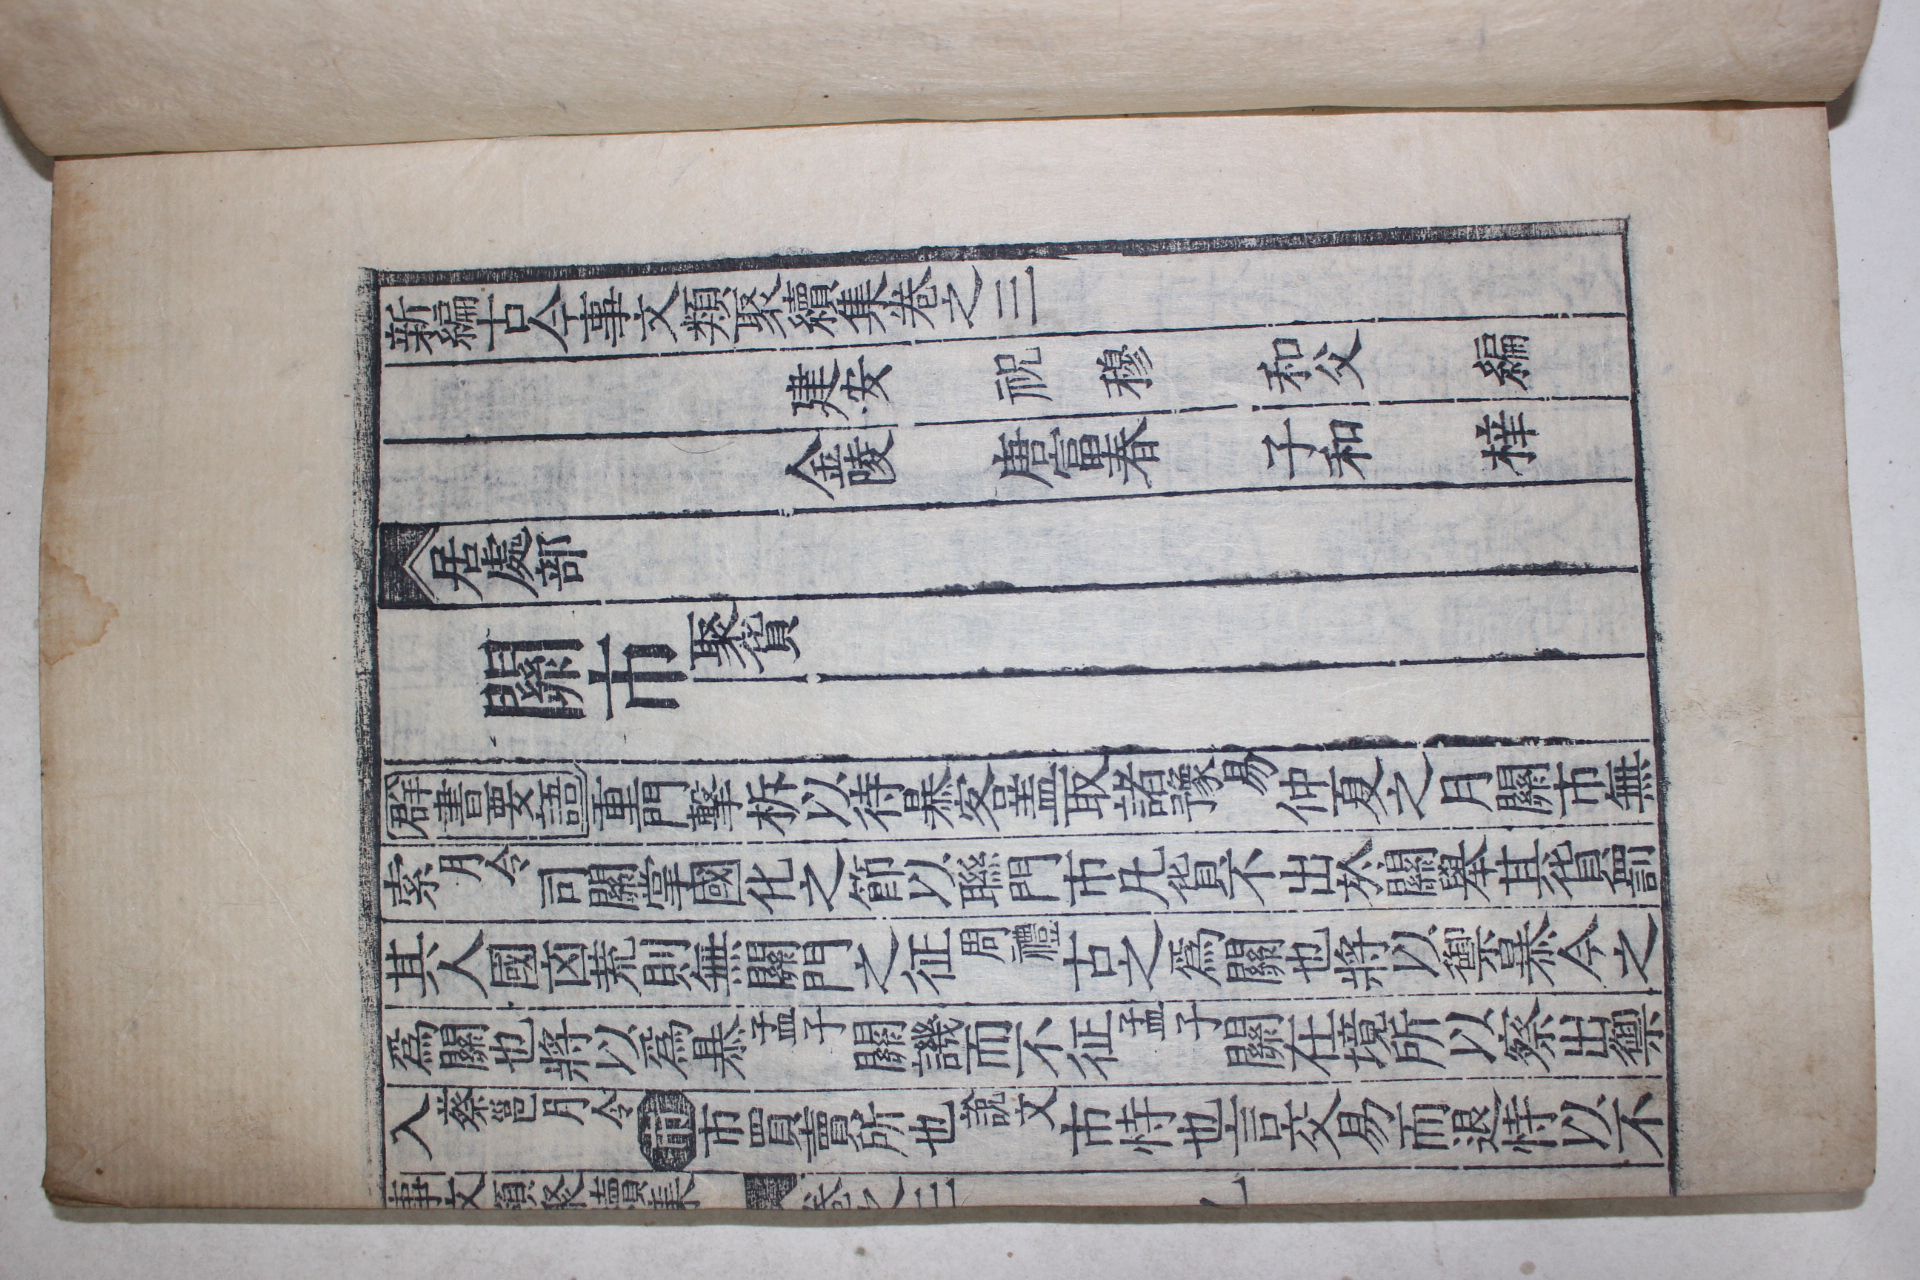 新編古今事文類聚續集卷之三
建安 祝 穆 和父 編
金陵 唐富春 子和 梓
居處部
關市 聚貨
群書要語 重門擊柝以待暴客盖取諸豫 易 仲夏之月關市無
索 月令 司關掌國化之節以聯門市凡貨不出於關舉其貨罰
其人國凶荒則無關門之征 周禮 古之爲關也將以禦暴今之
爲關也將以爲暴 孟子 關譏而不征 孟子 關在境所以察出禦
入 蔡邕月令 市 市買賣所也 說文 市恃也言交易而退恃以不
事文類聚續集 卷之三